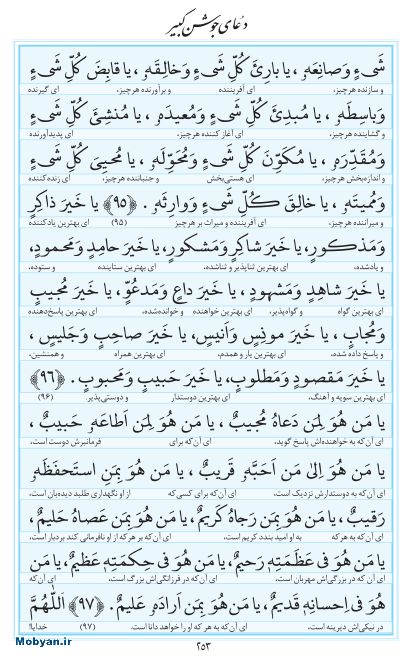 دعای جوشن کبیر
شَیءٍ وَصانِعَهُ، یا بارِئَ کُلِّ شَیءٍ وَخالِقَهُ، یا قابِضَ کُلِّ شَیءٍ
و سازنده هرچیز، ای آفریننده و برآورنده هرچیز، ای گیرنده
وَباسِطَهُ، یا مُبدِئَ کُلِّ شَیءٍ وَمُعیدَهُ، یا مُنشِئَ کُلِّ شَیءٍ
و گشاینده هرچیز، ای آغاز کننده هرچیز، ای پدیدآورنده
وَمُقَدِّرَهُ، یا مُکَوِّنَ کُلِّ شَیءٍ وَمُحَوِّلَهُ، یا مُحیِیَ کُلِّ شَیءٍ
و اندازه‌بخش هرچیز، ای هستی‌بخش و جنباننده هرچیز، ای زنده‌کننده
وَمُمیتَهُ، یا خالِقَ کُلِّ شَیءٍ وَوارِثَهُ. ﴿۹۵﴾ یا خَیرَ ذاکِرٍ
و میراننده هرچیز، ای آفریننده و میراث بر هرچیز (۹۵) ای بهترین یادکننده
وَمَذکورٍ، یا خَیرَ شاکِرٍ وَمَشکورٍ، یا خَیرَ حامِدٍ وَمَحمودٍ،
و یادشده، ای بهترین ثناپذیر و ثناشده، ای بهترین ستاینده و ستوده،
یا خَیرَ شاهِدٍ وَمَشهودٍ، یا خَیرَ داعٍ وَمَدعُوٍّ، یا خَیرَ مُجیبٍ
ای بهترین گواه و گواه‌پذیر، ای بهترین خواهنده و خوانده‌شده، ای بهترین پاسخ‌دهنده
وَمُجابٍ، یا خَیرَ مونِسٍ وَاَنیسٍ، یا خَیرَ صاحِبٍ وَجَلیسٍ،
و پاسخ داده شده، ای بهترین یار و همدم، ای بهترین همراه و همنشین،
یا خَیرَ مَقصودٍ وَمَطلوبٍ، یا خَیرَ حَبیبٍ وَمَحبوبٍ. ﴿۹۶﴾
ای بهترین سویه و آهنگ، ای بهترین دوستدار و دوستی‌پذیر. (۹۶)
یا مَن هُوَ لِمَن دَعاهُ مُجیبٌ، یا مَن هُوَ لِمَن اَطاعَهُ حَبیبٌ،
ای آن‌که به خواهنده‌اش پاسخ گوید، ای آن‌که برای فرمانبرش دوست است،
یا مَن هُوَ اِلیٰ مَن اَحَبَّهُ قَریبٌ، یا مَن هُوَ بِمَنِ استَحفَظَهُ
ای آن‌که به دوستدارش نزدیک است، ای آن‌که برای کسی که از او نگهداری طلبد دیده‌بان است،
رَقیبٌ، یا مَن هُوَ بِمَن رَجاهُ کَریمٌ، یا مَن هُوَ بِمَن عَصاهُ حَلیمٌ،
ای آن‌که به هر‌که به او امید بندد کریم است، ای آن‌که بر هر‌که از او نافرمانی کند بردبار است،
یا مَن هُوَ فی عَظَمَتِهِ رَحیمٌ، یا مَن هُوَ فی حِکمَتِهِ عَظیمٌ، یا مَن
ای آن‌که در بزرگی‌اش مهربان است، ای آن‌که در فرزانگی‌اش بزرگ است، ای آن‌که
هُوَ فی اِحسانِهِ قَدیمٌ، یا مَن هُوَ بِمَن اَرادَهُ عَلیمٌ. ﴿۹۷﴾ اَللّٰهُمَّ
در نیکی‌اش دیرینه است، ای آن‌که به هر که او را خواهد دانا است. (۹۷) خدایا!
Mobyan.ir
۲۵۳